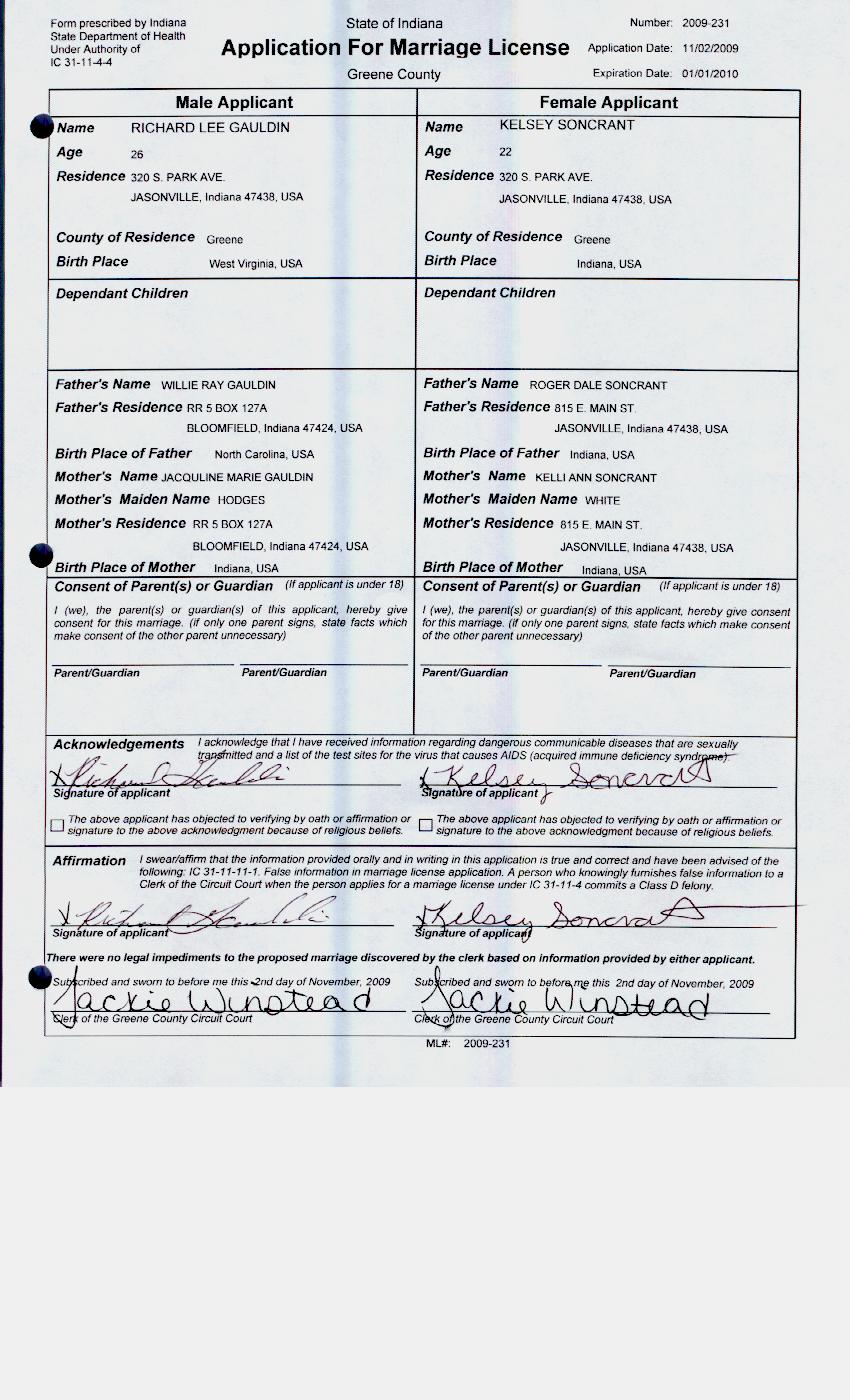 Form prescribed by Indiana
State Department of Health
Under Authority of
IC 31-11-4-4
State of Indiana
Application For Marriage License
Greene County
Number: 2009-231
Application Date: 11/02/2009
Expiration Date: 01/01/2010
Male Applicant
Name RICHARD LEE GAULDIN
Age 26
Residence 320 S. PARK AVE.
JASONVILLE, Indiana 47438, USA
County of Residence Greene
Birth Place West Virginia, USA
Dependant Children
Father's Name WILLIE RAY GAULDIN
Father's Residence RR 5 BOX 127A
BLOOMFIELD, Indiana 47424, USA
Birth Place of Father North Carolina, USA
Mother's Name JACQULINE MARIE GAULDIN
Mother's Maiden Name HODGES
Mother's Residence RR 5 BOX 127A
BLOOMFIELD, Indiana 47424, USA
Birth Place of Mother Indiana, USA
Consent of Parent(s) or Guardian (If applicant is under 18)
I (we), the parent(s) or guardian(s) of this applicant, hereby give
consent for this marriage. (if only one parent signs, state facts which
make consent of the other parent unnecessary)
Parent/Guardian Parent/Guardian
Female Applicant
Name KELSEY SONCRANT
Age 22
Residence 320 S. PARK AVE.
JASONVILLE, Indiana 47438, USA
County of Residence Greene
Birth Place Indiana, USA
Dependant Children
Father's Name ROGER DALE SONCRANT
Father's Residence 815 E. MAIN ST.
JASONVILLE, Indiana 47438, USA
Birth Place of Father Indiana, USA
Mother's Name KELLI ANN SONCRANT
Mother's Maiden Name WHITE
Mother's Residence 815 E. MAIN ST.
JASONVILLE, Indiana 47438, USA
Birth Place of Mother Indiana, USA
Consent of Parent(s) or Guardian (If applicant is under 18)
I (we), the parent(s) or guardian(s) of this applicant, hereby give consent
for this marriage. (if only one parent signs, state facts which make consent
of the other parent unnecessary)
Parent/Guardian Parent/Guardian
Acknowledgements I acknowledge that I have received information regarding dangerous communicable diseases that are sexually
transmitted and a list of the test sites for the virus that causes AIDS (acquired immune deficiency syndrome).
X Richard Gauldin X Kelsey Soncrant
Signature of applicant Signature of applicant
The above applicant has objected to verifying by oath or affirmation or
signature to the above acknowledgment because of religious beliefs.
The above applicant has objected to verifying by oath or affirmation or
signature to the above acknowledgment because of religious beliefs.
Affirmation I swear/affirm that the information provided orally and in writing in this application is true and correct and have been advised of the
following: IC 31-11-11-1. False information in marriage license application. A person who knowingly furnishes false information to a
Clerk of the Circuit Court when the person applies for a marriage license under IC 31-11-4 commits a Class D felony.
X Richard Gauldin X Kelsey Soncrant
Signature of applicant Signature of applicant
There were no legal impediments to the proposed marriage discovered by the clerk based on information provided by either applicant.
Subscribed and sworn to before me this 2nd day of November, 2009 Subscribed and sworn to before me this 2nd day of November, 2009
Jackie Winstead Jackie Winstead
Clerk of the Greene County Circuit Court Clerk of the Greene County Circuit Court
ML#: 2009-231